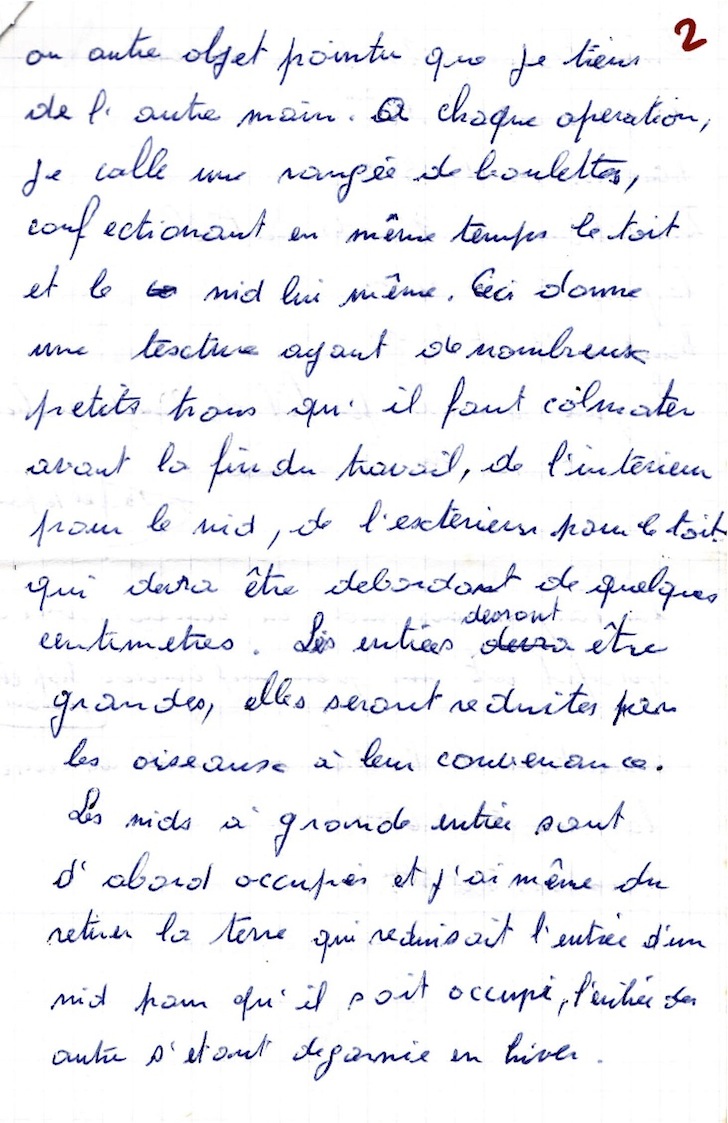 2
ou autre objet pointu que je tiens
de l'autre main. A chaque operation,
je colle une rangée de boulettes,
confectionant en même temps le toit
et le nid lui même. Ceci donne
une texture ayant de nombreux
petits trous qu'il faut colmater
avant la fin du travail, de l'intérieur
pour le nid, de l'exterieur pour le toit
qui devra être debordant de quelques
centimetres. Les entrées devront être
grandes, elles seront reduites par
les oiseaux à leur convenance.
Les nids à grande entrée sont
d'abord occupés et j'ai même du
retirer la terre qui reduisait l'entrée d'un
nid pour qu'il soit occupé, l'entrée des
autre s'etant degarnie en hiver.